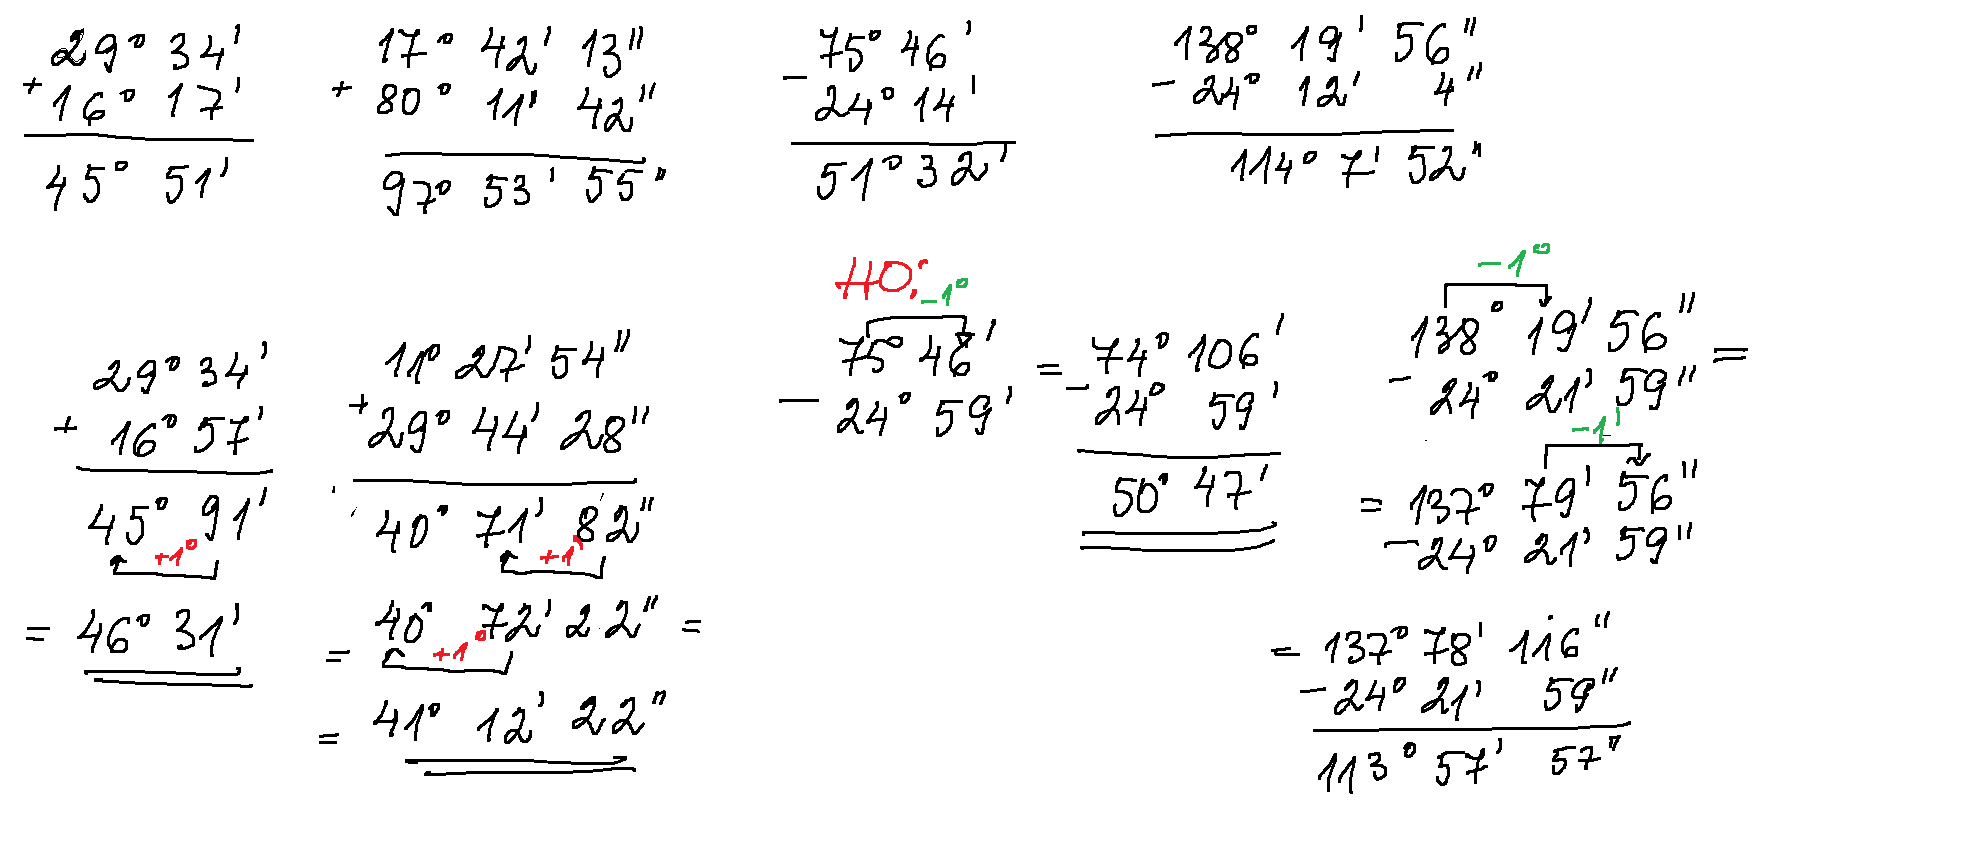 29° 34'
+ 16° 17'
45° 51'
17° 42' 13"
+ 80° 11' 42"
97° 53' 55"
75° 46'
- 24° 14'
51° 32'
138° 19' 56"
- 24° 12' 4"
114° 7' 52"
29° 34'
+ 16° 57'
45° 91'
+1°
= 46° 31'
11° 27' 54"
+ 29° 44' 28"
40° 71' 82"
+1'
= 40° 72' 22" =
+1°
= 41° 12' 22"
НО:
-1°
75° 46'
- 24° 59'
= 74° 106'
- 24° 59'
50° 47'
-1°
138° 19' 56" =
- 24° 21' 59"
-1'
= 137° 79' 56"
- 24° 21' 59"
= 137° 78' 116"
- 24° 21' 59"
113° 57' 57"